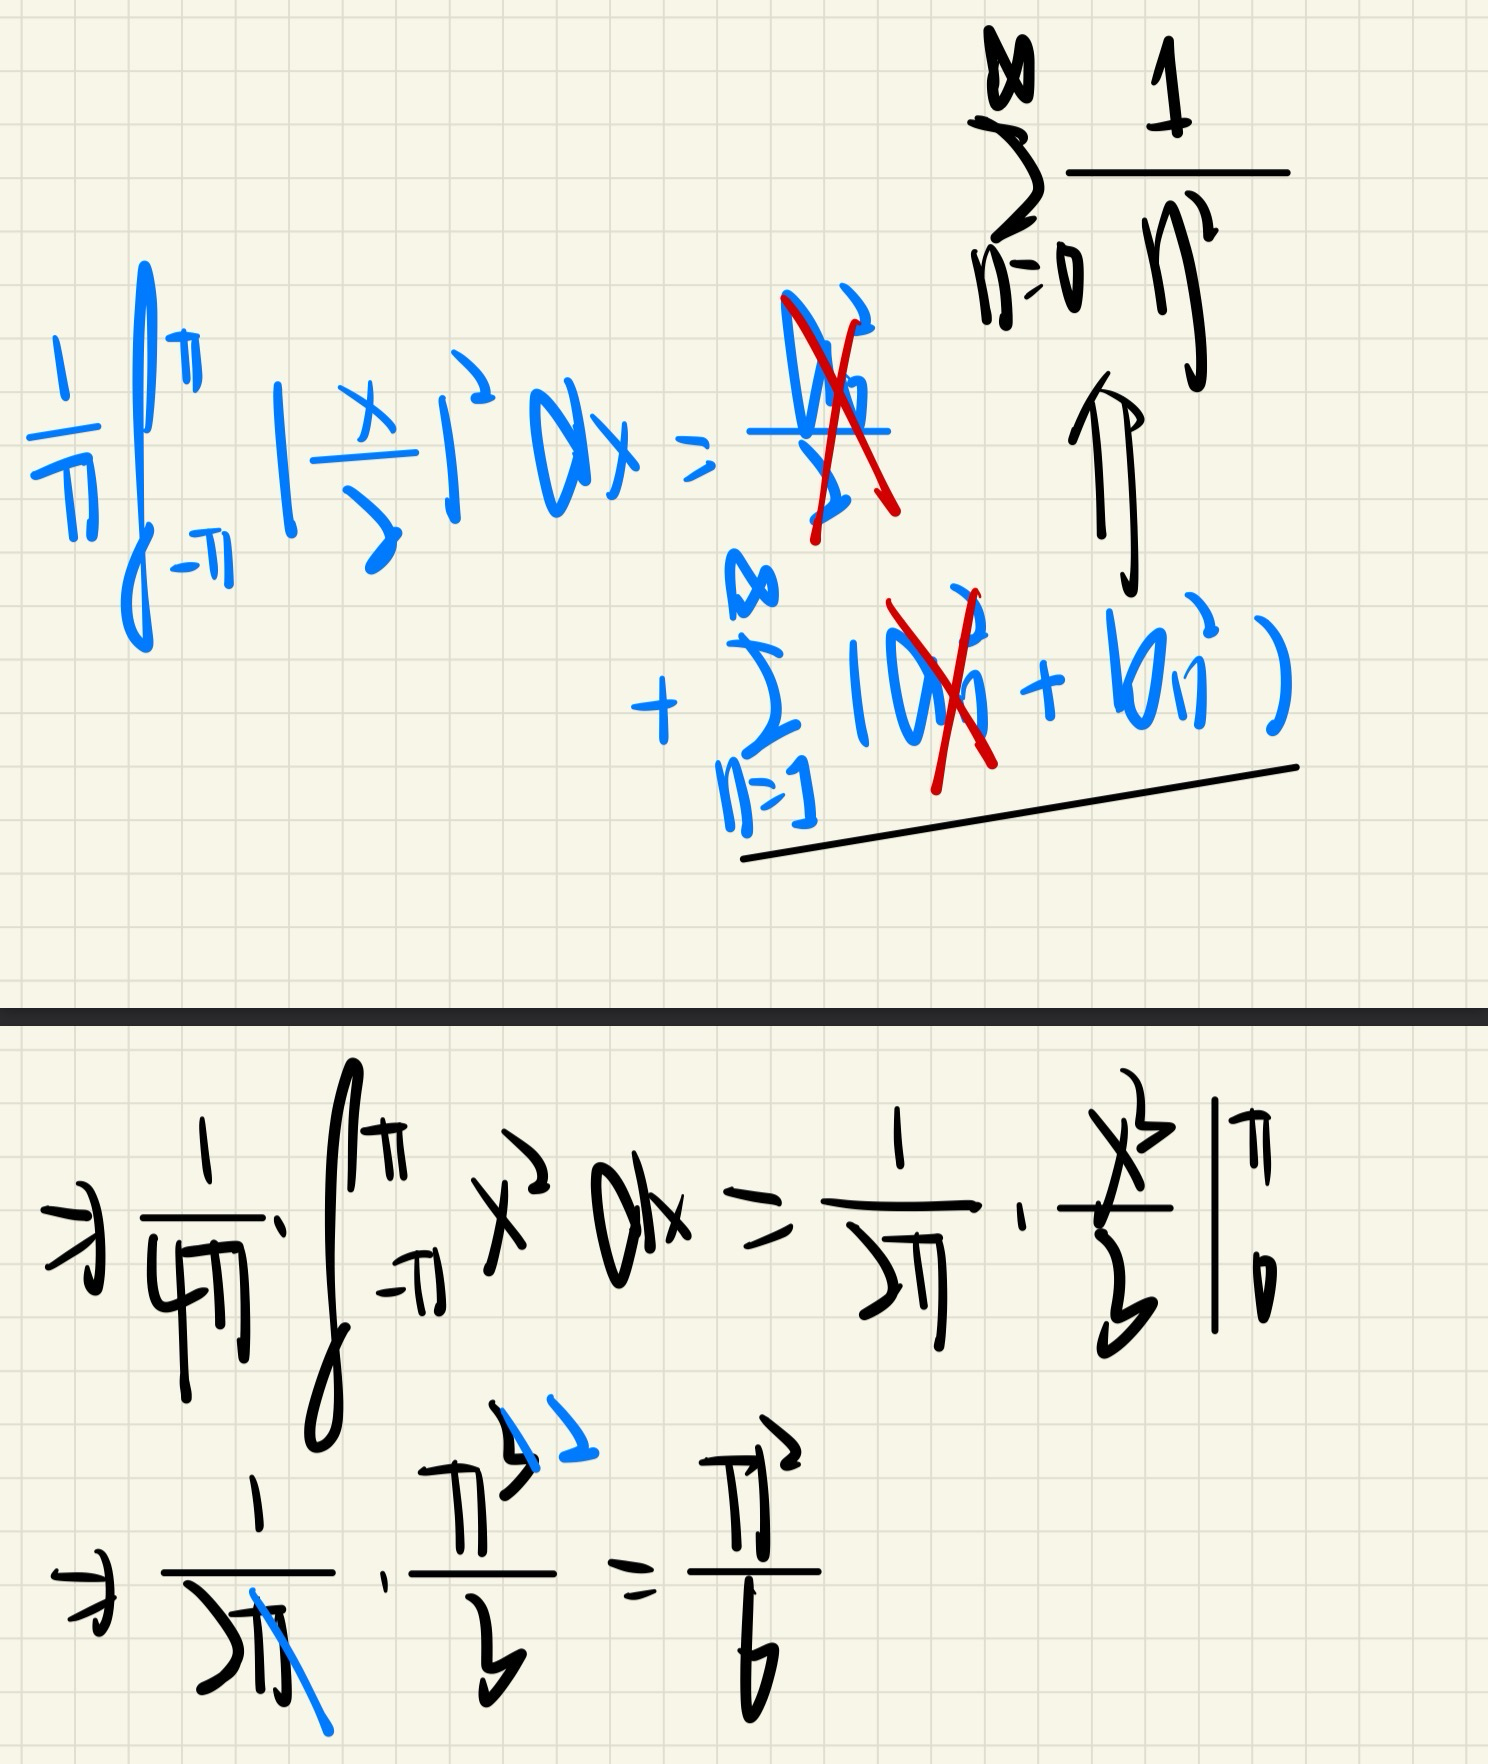 ∑_{n=0}^{∞} 1/n²
⇑
1/π ∫_{-π}^{π} (x/2)² dx = a₀²/2
+ ∑_{n=1}^{∞} (aₙ² + bₙ²)
⇒ 1/4π · ∫_{-π}^{π} x² dx = 1/2π · x³/3 |_0^π
⇒ 1/2π · π³ ²/3 = π²/6